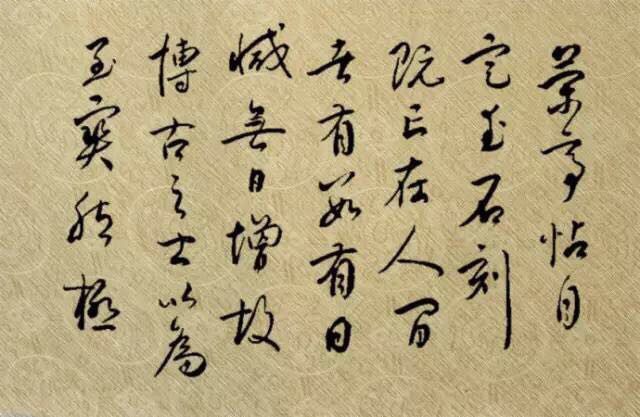 蘭亭帖自
定武石刻
既亡在人間
者有數有日
減無日增故
博古之士以為
至寶然極